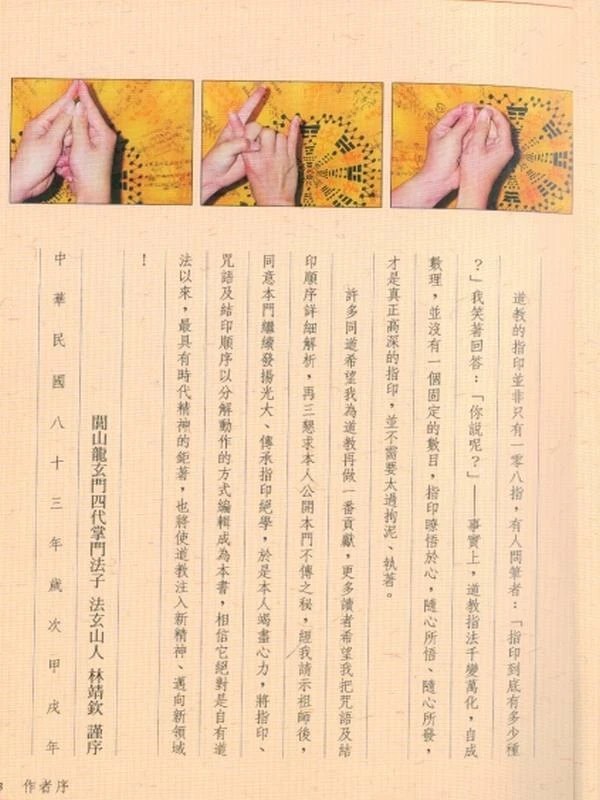 道教的指印並非只有一零八指，有人問筆者：「指印到底有多少種
？」我笑著回答：「你說呢？」——事實上，道教指法千變萬化，自成
數理，並沒有一個固定的數目，指印瞭悟於心，隨心所悟、隨心所發，
才是真正高深的指印，並不需要太過拘泥、執著。
許多同道希望我為道教再做一番貢獻，更多讀者希望我把咒語及結
印順序詳細解析，再三懇求本人公開本門不傳之秘，經我請示祖師後，
同意本門繼續發揚光大、傳承指印絕學，於是本人竭盡心力，將指印、
咒語及結印順序以分解動作的方式編輯成為本書，相信它絕對是自有道
法以來，最具有時代精神的鉅著，也將使道教注入新精神、邁向新領域
！
閭山龍玄門四代掌門法子 法玄山人 林靖欽 謹序
中華民國八十三年歲次甲戌年
作者序